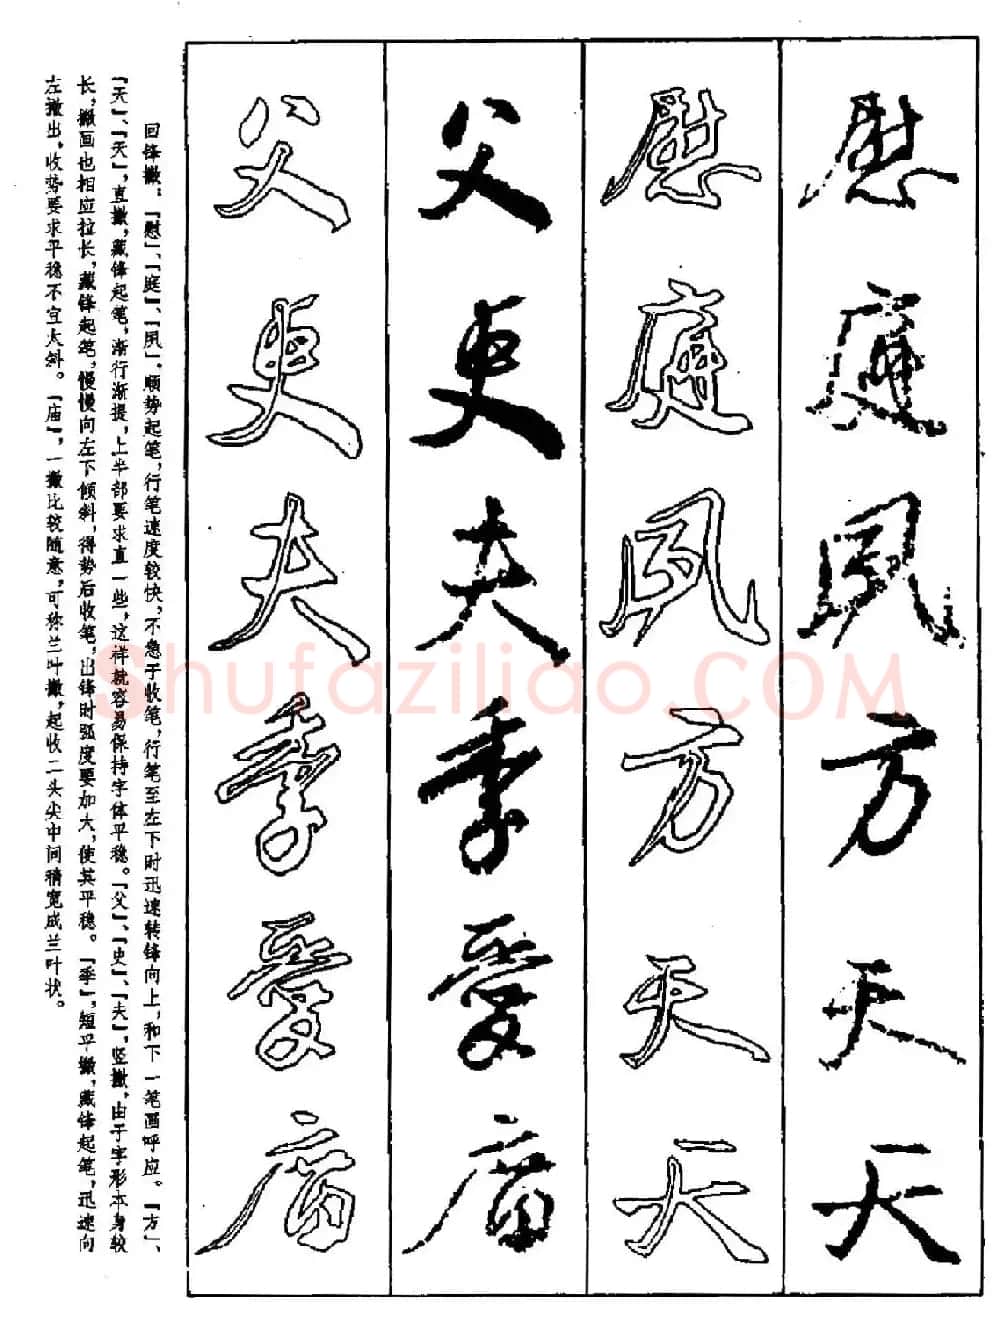 慰庭夙方天天
慰庭夙方天天
父更夫季爱庙
父更夫季爱庙
回锋撇。「慰」、「庭」、「夙」.顺势起笔,行笔速度较快,不急于收笔,行笔至左下时迅速转锋向上,和下一笔画呼应。「方」、
「天」、「天」,直撇,藏锋起笔,渐行渐提,上半部要求直一些,这样就容易保持字体平稳。「父」、「史」、「夫」,竖撇,由于字形本身较
长,撇画也相应拉长,藏锋起笔,慢慢向左下倾斜,得势后收笔,出锋时强度要加大,使其平稳。「季」,短平撇,藏锋起笔,迅速向
左撇出,收势要求平稳不宜太斜。「庙」,一撇比较随意,可称兰叶撇,起收二头尖中间稍宽成兰叶状。
Shufaziliao.COM